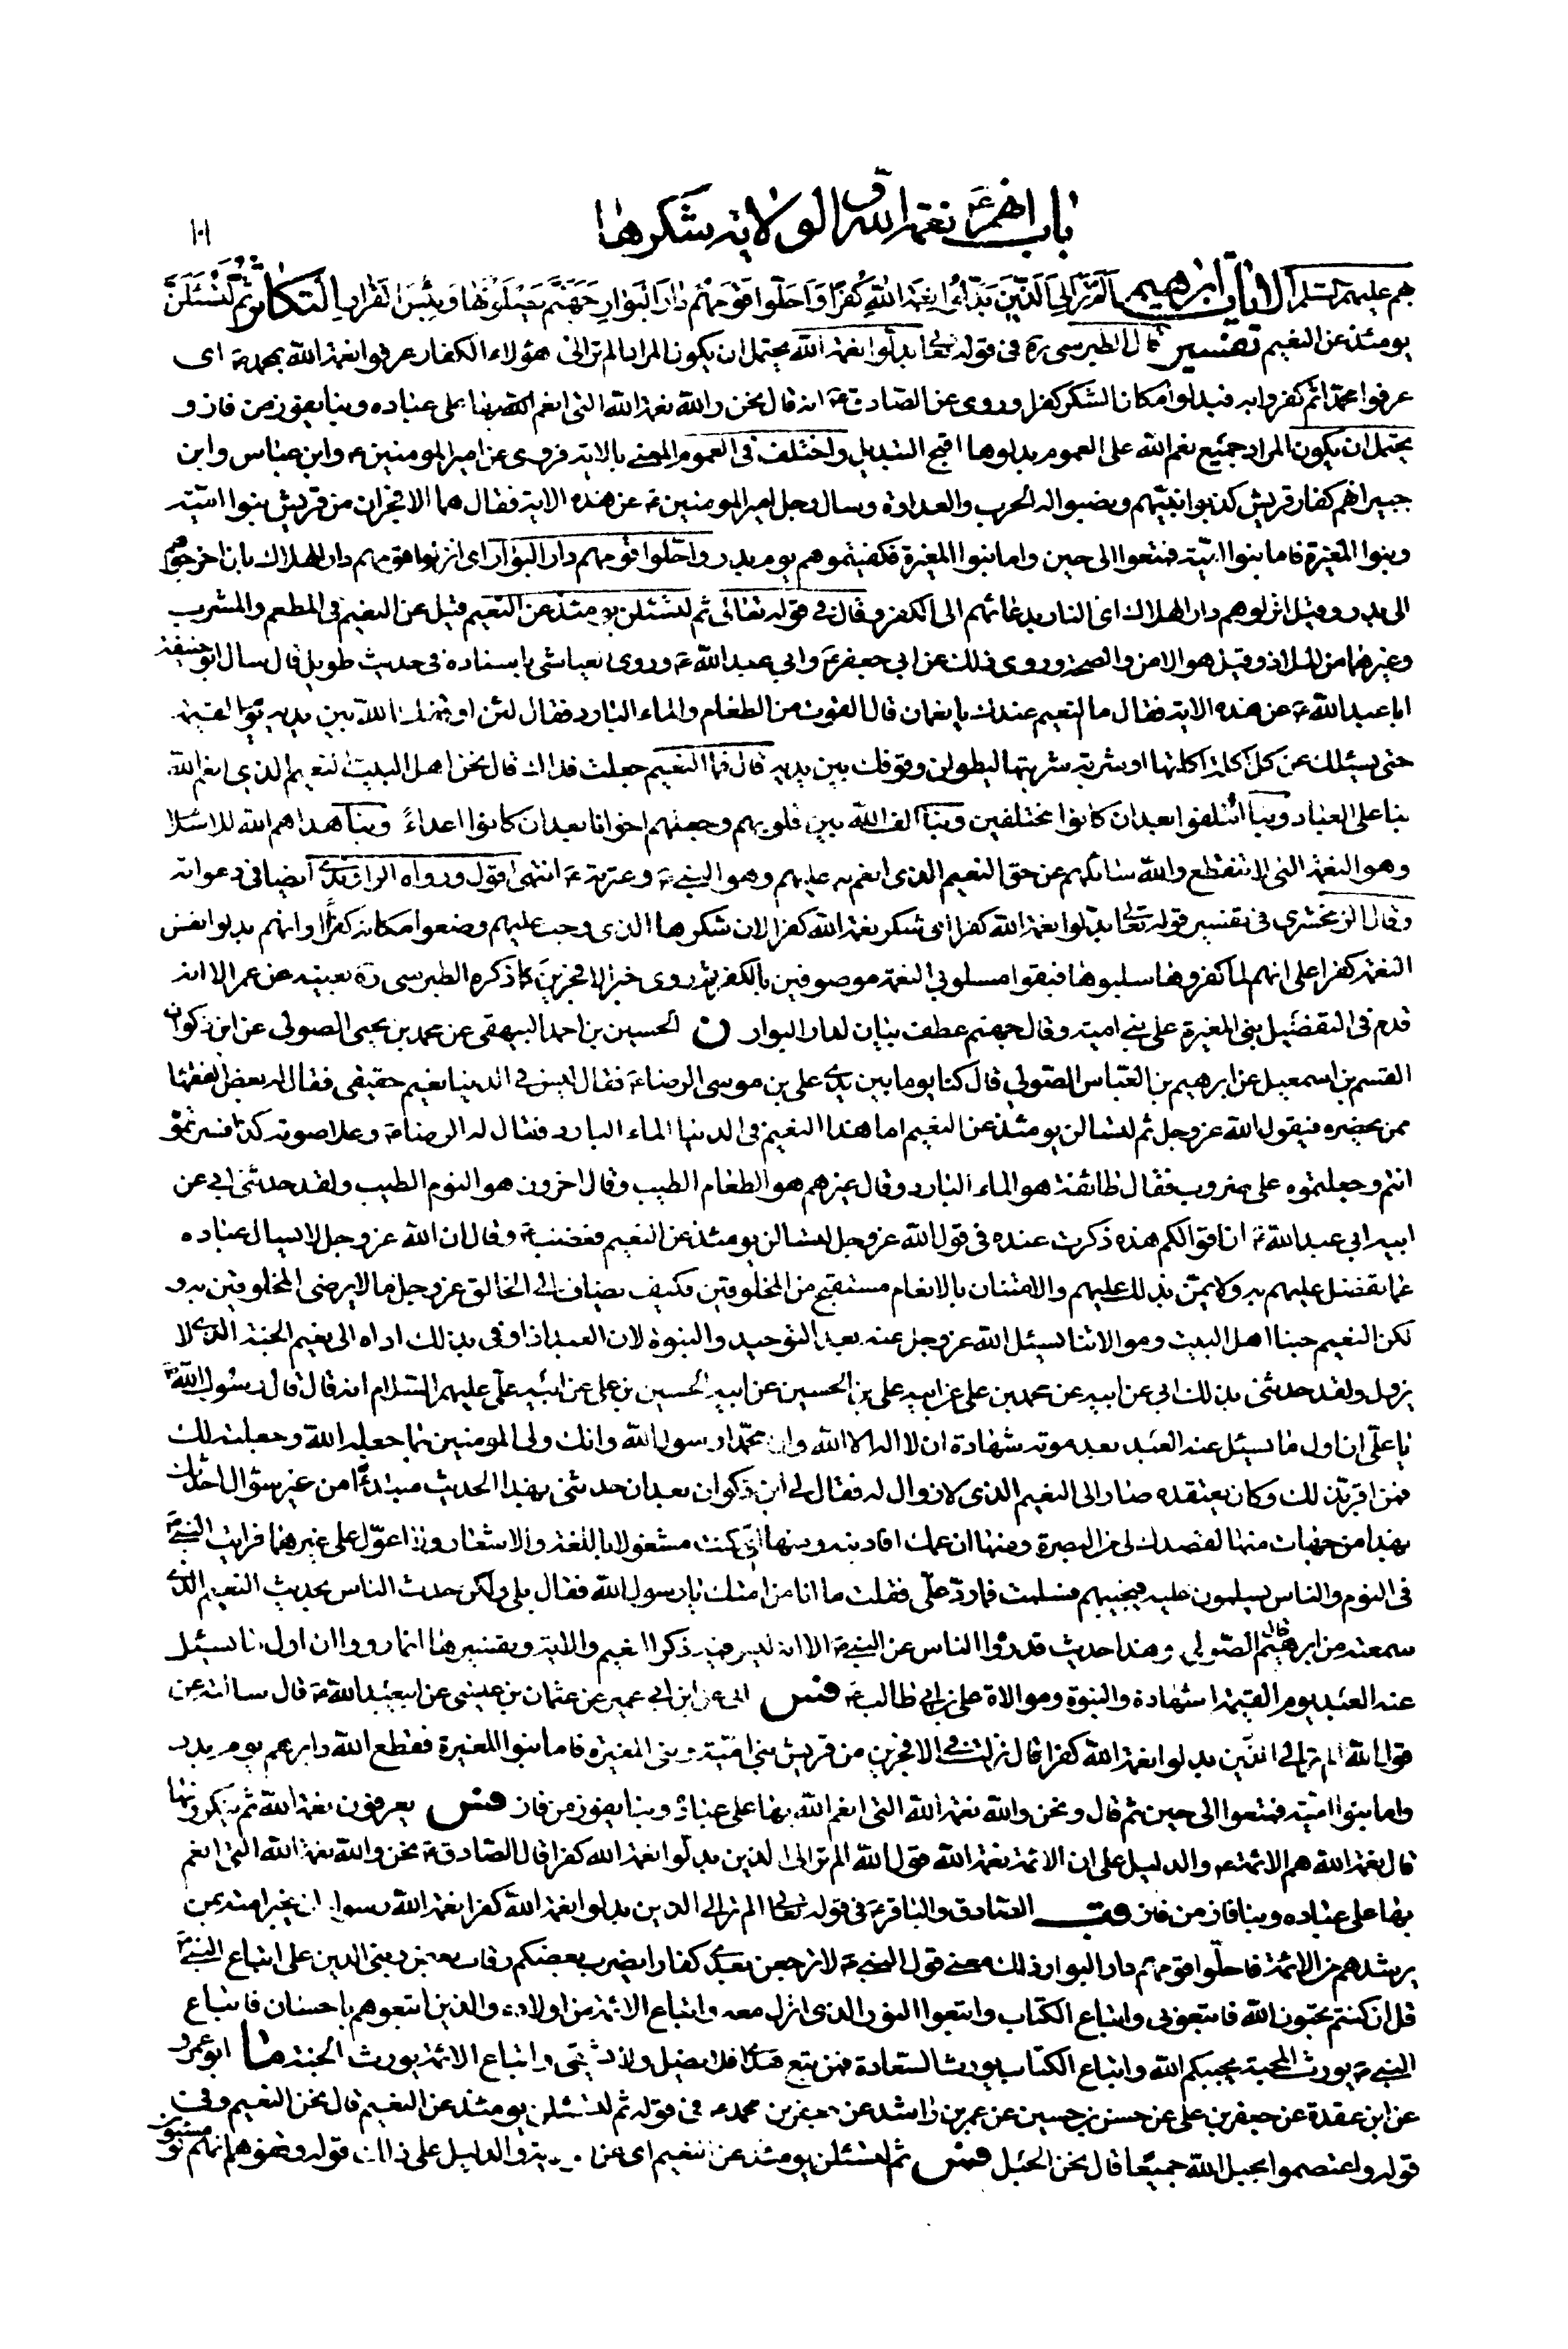 باب انهم ع نعمة الله والولاية شكرها
١٠١
هم عليهم السلم الايات ابرهيم الم تر الى الذين بدلوا نعمة الله كفرا واحلوا قومهم دار البوار جهنم يصلونها وبئس القرار التكاثر ثم لتسئلن
يومئذ عن النعيم تفسير قال الطبرسي ره في قوله تعالى بدلوا نعمة الله يحتمل ان يكون المراد الم تر الى هؤلاء الكفار عرفوا نعمة الله بمحمد اى
عرفوا محمدا ثم كفروا به فبدلوا مكان الشكر كفرا وروى عن الصادق ع انه قال نحن والله نعمة الله التى انعم الله بها على عباده وبنا يفوز من فاز و
يحتمل ان يكون المراد جميع نعم الله على العموم بدلوها اقبح التبديل واختلف في العموم المعنى بالاية فروى عن امير المومنين ع وابن عباس وابن
جبير انهم كفار قريش كذبوا نبيهم ونصبوا له الحرب والعداوة وسال رجل امير المومنين ع عن هذه الاية فقال هما الافجران من قريش بنوا امية
وبنوا المغيرة فاما بنوا امية فمتعوا الى حين واما بنوا المغيرة فكفيتموهم يوم بدر واحلوا قومهم دار البوار اى انزلوا قومهم دار الهلاك بان اخرجوهم
الى بدر وقيل انزلوهم دار الهلاك اى النار بدعائهم الى الكفر وقال في قوله تعالى ثم لتسئلن يومئذ عن النعيم قيل عن النعيم في المطعم والمشرب
وغيرهما من الملاذ وقيل هو الامن والصحة وروى ذلك عن ابي جعفر ع وابي عبد الله ع وروى العياشى باسناده في حديث طويل قال سال ابو حنيفة
ابا عبد الله ع عن هذه الاية فقال ما النعيم عندك يا نعمان قال القوت من الطعام والماء البارد فقال لئن اوقفك الله بين يديه يوم القيمة
حتى يسئلك عن كل اكلة اكلتها او شربة شربتها ليطولن وقوفك بين يديه قال فما النعيم جعلت فداك قال نحن اهل البيت النعيم الذى انعم الله
بنا على العباد وبنا ائتلفوا بعد ان كانوا مختلفين وبنا الف الله بين قلوبهم وجعلهم اخوانا بعد ان كانوا اعداء وبنا هداهم الله للاسلا
وهو النعمة التى لا تنقطع والله سائلهم عن حق النعيم الذى انعم به عليهم وهو النبي ص وعترته ع انتهى اقول ورواه الراوندى ايضا في دعواته
وقال الزمخشري في تفسير قوله تعالى بدلوا نعمة الله كفرا اى شكر نعمة الله كفرا لان شكرها الذى وجب عليهم وضعوا مكانه كفرا او انهم بدلوا نفس
النعمة كفرا على انهم لما كفروها سلبوها فبقوا مسلوبي النعمة موصوفين بالكفر ثم روى خبر الافجرين كما ذكره الطبرسى ره بعينه عن عمر الا انه
قدم في التفضيل بني المغيرة على بني امية وقال جهنم عطف بيان لدار البوار ن الحسين بن احمد البيهقي عن محمد بن يحيى الصولى عن ابن ذكوان
القسم بن اسمعيل عن ابرهيم بن العباس الصولي قال كنا يوما بين يدى على بن موسى الرضا ع فقال ليس في الدنيا نعيم حقيقى فقال له بعض الفقها
ممن يحضره فيقول الله عز وجل ثم لتسالن يومئذ عن النعيم اما هذا النعيم في الدنيا الماء البارد فقال له الرضا ع وعلا صوته كذا فسرتموه
انتم وجعلتموه على ضروب فقال طائفة هو الماء البارد وقال غيرهم هو الطعام الطيب وقال اخرون هو النوم الطيب ولقد حدثنى ابي عن
ابيه ابي عبد الله ع ان اقوالكم هذه ذكرت عنده في قول الله عز وجل لتسالن يومئذ عن النعيم فغضب ع وقال ان الله عز وجل لا يسال عباده
عما تفضل عليهم به ولا يمن بذلك عليهم والامتنان بالانعام مستقبح من المخلوقين فكيف يضاف الى الخالق عز وجل ما لا يرضى المخلوقين به و
لكن النعيم حبنا اهل البيت وموالاتنا يسئل الله عز وجل عنه بعد التوحيد والنبوة لان العبد اذا وفى بذلك اداه الى نعيم الجنة الذى لا
يزول ولقد حدثنى بذلك ابي عن ابيه عن محمد بن على عن ابيه على بن الحسين عن ابيه الحسين بن على عن ابيه على عليهم السلام انه قال قال رسول الله ص
يا على ان اول ما يسئل عنه العبد بعد موته شهادة ان لا اله الا الله وان محمدا رسول الله وانك ولى المومنين بما جعله الله وجعلته لك
فمن اقر بذلك وكان يعتقده صار الى النعيم الذى لا زوال له فقال لي ابن ذكوان بعد ان حدثنى بهذا الحديث مبتدءا من غير سؤال احدثك
بهذا من جهات منها لقصدك لى من البصرة ومنها ان عمك افادنيه ومنها انى كنت مشغولا باللغة والاشعار ولا اعول على غيرهما فرايت النبي ص
في النوم والناس يسلمون عليه فيجيبهم فسلمت فما رد على فقلت ما انا من امتك يا رسول الله فقال بلى ولكن حدث الناس بحديث النعيم الذى
سمعته من ابرهيم قال الصولي وهذا حديث قد رووا الناس عن النبي ص الا انه ليس فيه ذكر النعيم والاية وتفسيرها انما رووا ان اول ما يسئل
عنه العبد يوم القيمة الشهادة والنبوة وموالاة على بن ابي طالب ع فس ابى عن ابن ابي عمير عن عثمان بن عيسى عن ابي عبد الله ع قال سالته عن
قول الله الم تر الى الذين بدلوا نعمة الله كفرا قال نزلت في الافجرين من قريش بني امية وبني المغيرة فاما بنوا المغيرة فقطع الله دابرهم يوم بدر
واما بنوا امية فمتعوا الى حين ثم قال ونحن والله نعمة الله التى انعم الله بها على عباده وبنا يفوز من فاز فس يعرفون نعمة الله ثم ينكرونها
قال نعمة الله هم الائمة ع والدليل على ان الائمة نعمة الله قول الله الم تر الى الذين بدلوا نعمة الله كفرا قال الصادق ع نحن والله نعمة الله التى انعم
بها على عباده وبنا فاز من فاز قب الصادق والباقر ع في قوله تعالى الم تر الى الذين بدلوا نعمة الله كفرا نعمة الله رسوله اذ يخبر امته بمن
يرشدهم من الائمة فاحلوا قومهم دار البوار ذلك معنى قول النبي ص لا ترجعن بعدى كفارا يضرب بعضكم رقاب بعض وبني الدين على اتباع النبي ص
قل ان كنتم تحبون الله فاتبعوني واتباع الكتاب واتبعوا النور الذى انزل معه واتباع الائمة من اولاده والذين اتبعوهم باحسان فاتباع
النبي ص يورث المحبة يحببكم الله واتباع الكتاب يورث السعادة فمن تبع هداى فلا يضل ولا يشقى واتباع الائمة يورث الجنة ما ابو عمرو
عن ابن عقدة عن جعفر بن على عن حسن بن حسين عن عمر بن راشد عن جعفر بن محمد ع في قوله ثم لتسئلن يومئذ عن النعيم قال نحن النعيم وفي
قوله واعتصموا بحبل الله جميعا قال نحن الحبل فس ثم لتسئلن يومئذ عن النعيم اى عن والدليل على ذلك قوله وقفوهم انهم مسئولون